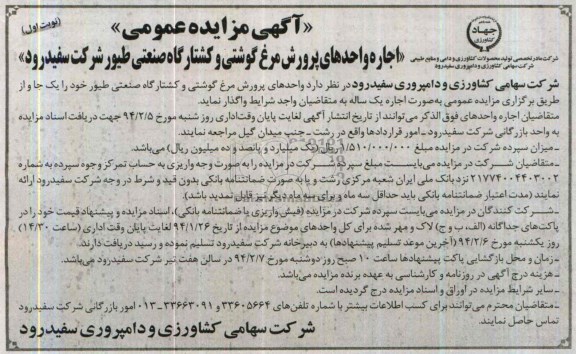 «آگهی مزایده عمومی»
(نوبت اول)
جهاد
کشاورزی
شرکت مادر تخصصی تولید محصولات کشاورزی و دامی و منابع طبیعی
شرکت سهامی کشاورزی و دامپروری سفیدرود
«اجاره واحدهای پرورش مرغ گوشتی و کشتارگاه صنعتی طیور شرکت سفیدرود»
شرکت سهامی کشاورزی و دامپروری سفیدرود در نظر دارد واحدهای پرورش مرغ گوشتی و کشتارگاه صنعتی طیور خود را یک جا و از
طریق برگزاری مزایده عمومی به‌صورت اجاره یک ساله به متقاضیان واجد شرایط واگذار نماید.
متقاضیان اجاره واحدهای فوق الذکر می‌توانند از تاریخ انتشار آگهی لغایت پایان وقت اداری روز شنبه مورخ ۹۴/۲/۵ جهت دریافت اسناد مزایده
به واحد بازرگانی شرکت سفیدرود - امور قراردادها واقع در رشت - جنب میدان گیل مراجعه نمایند.
- میزان سپرده شرکت در مزایده مبلغ ۱/۵۱۰/۰۰۰/۰۰۰ ریال (یک میلیارد و پانصد و ده میلیون ریال) می‌باشد.
- متقاضیان شرکت در مزایده می‌بایست مبلغ سپرده شرکت در مزایده را به صورت وجه واریزی به حساب تمرکز وجوه سپرده به شماره
۲۱۷۷۴۰۰۴۴۰۳۰۰۲ نزد بانک ملی ایران شعبه مرکزی رشت و یا به صورت ضمانتنامه بانکی بدون قید و شرط در وجه شرکت سفیدرود ارائه
نمایند (مدت اعتبار ضمانتنامه بانکی باید حداقل سه ماه و برای سه ماه دیگر نیز قابل تمدید باشد).
- شرکت کنندگان در مزایده می‌بایست سپرده شرکت در مزایده (فیش واریزی یا ضمانتنامه بانکی)، اسناد مزایده و پیشنهاد قیمت خود را در
پاکت‌های جداگانه (الف، ب و ج) لاک و مهر شده برای کل واحدهای موضوع مزایده از تاریخ ۹۴/۱/۲۶ لغایت پایان وقت اداری (ساعت ۱۴/۳۰)
روز یکشنبه مورخ ۹۴/۲/۶ (آخرین موعد تسلیم پیشنهادها) به دبیرخانه شرکت سفیدرود تسلیم نموده و رسید دریافت دارند.
- زمان و محل بازگشایی پاکت پیشنهادها ساعت ۱۰ صبح روز دوشنبه مورخ ۹۴/۲/۷ در سالن هفت تیر شرکت سفیدرود می‌باشد.
- هزینه درج آگهی در روزنامه و کارشناسی به عهده برنده مزایده می‌باشد.
- سایر شرایط مزایده در اوراق و اسناد مزایده درج گردیده است.
- متقاضیان محترم می‌توانند برای کسب اطلاعات بیشتر با شماره تلفن‌های ۳۳۶۰۵۶۶۴ و ۳۳۶۶۳۰۹۱ - ۰۱۳ امور بازرگانی شرکت سفیدرود
تماس حاصل نمایند.
شرکت سهامی کشاورزی و دامپروری سفیدرود